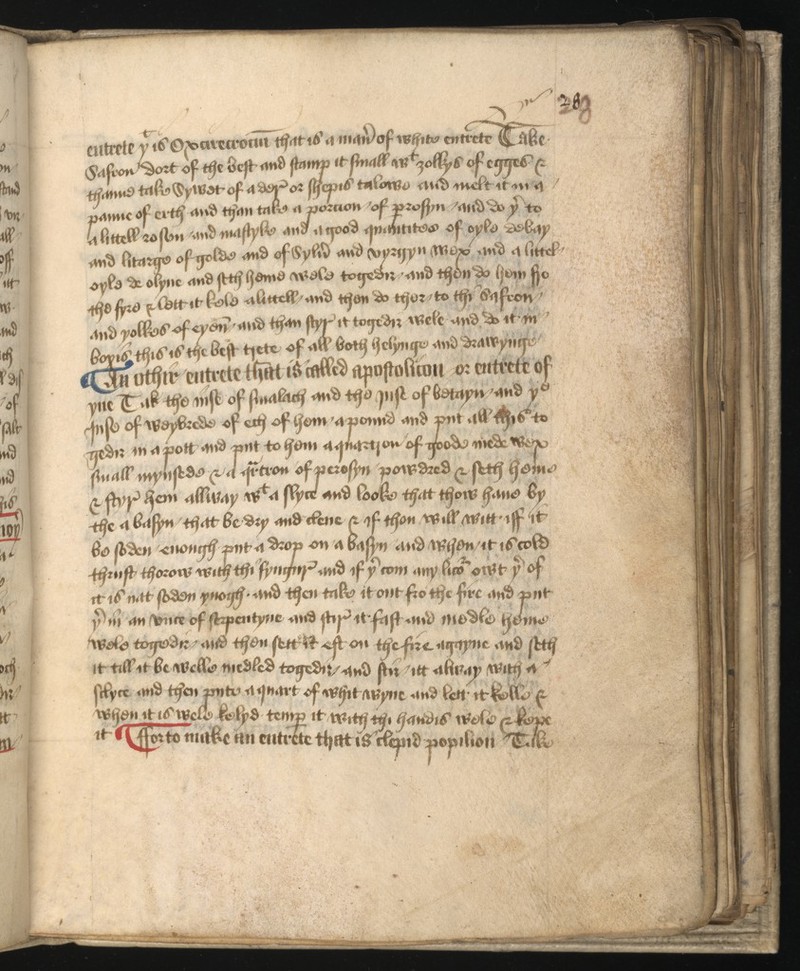 283
entrete yt is Oxcirecrociu that is a man of white entrete Take
Safron Dort of the best and stamp it small wt ȝollys of egges &
thanne take Sywet of a der or shepis talowe and melt it in a
panne of erth and than take a porcion of prosyn and do yr to
a littell rosyn and mastyke and a good quantitee of oyle de bay
and litarge of golde and of Sylur and vyrgyn wex and a littel
oyle de olyue and seth heme wele togedir and then do hem fro
the fyre & lett it kele a littell and then do ther to thi Safron
and yolkes of eyen and than styr it togedir wele and do it in
boxis this is the best trete of all both helynge and drawynge
An othir entrete that is called apostolicon or entrete of
yne Tak the iuse of smalach and the Juse of betayn and ye
Juse of weybrede of ech of hem a pound and put all this to
gedir in a pott and put to hem a quartron of goode mede wex
small mynsede & a qrtron of perosyn powdred & seth heme
& styr hem allway wt a slyce and looke that thow haue by
the a basyn that be dry and clene & if thou will witt iff it
be soden enough put a drop on a basyn and when it is cold
thrust thorow with thi fyngur and if yr com any lico owt yr of
it is nat soden ynogh and then take it out fro the fire and put
yr in an vnce of terpentyne and stir it fast and medle heme
wele togedir and then sett it eft on the fire agayne and seth
it till it be welle medled togedir and stir itt alway with a
sclyce and then putte a quart of whit wyne and lett it kelle &
when it is wele kelyd temp it with thi handis wele & kepe
it Ffor to make an entrete that is clepid popilion Take